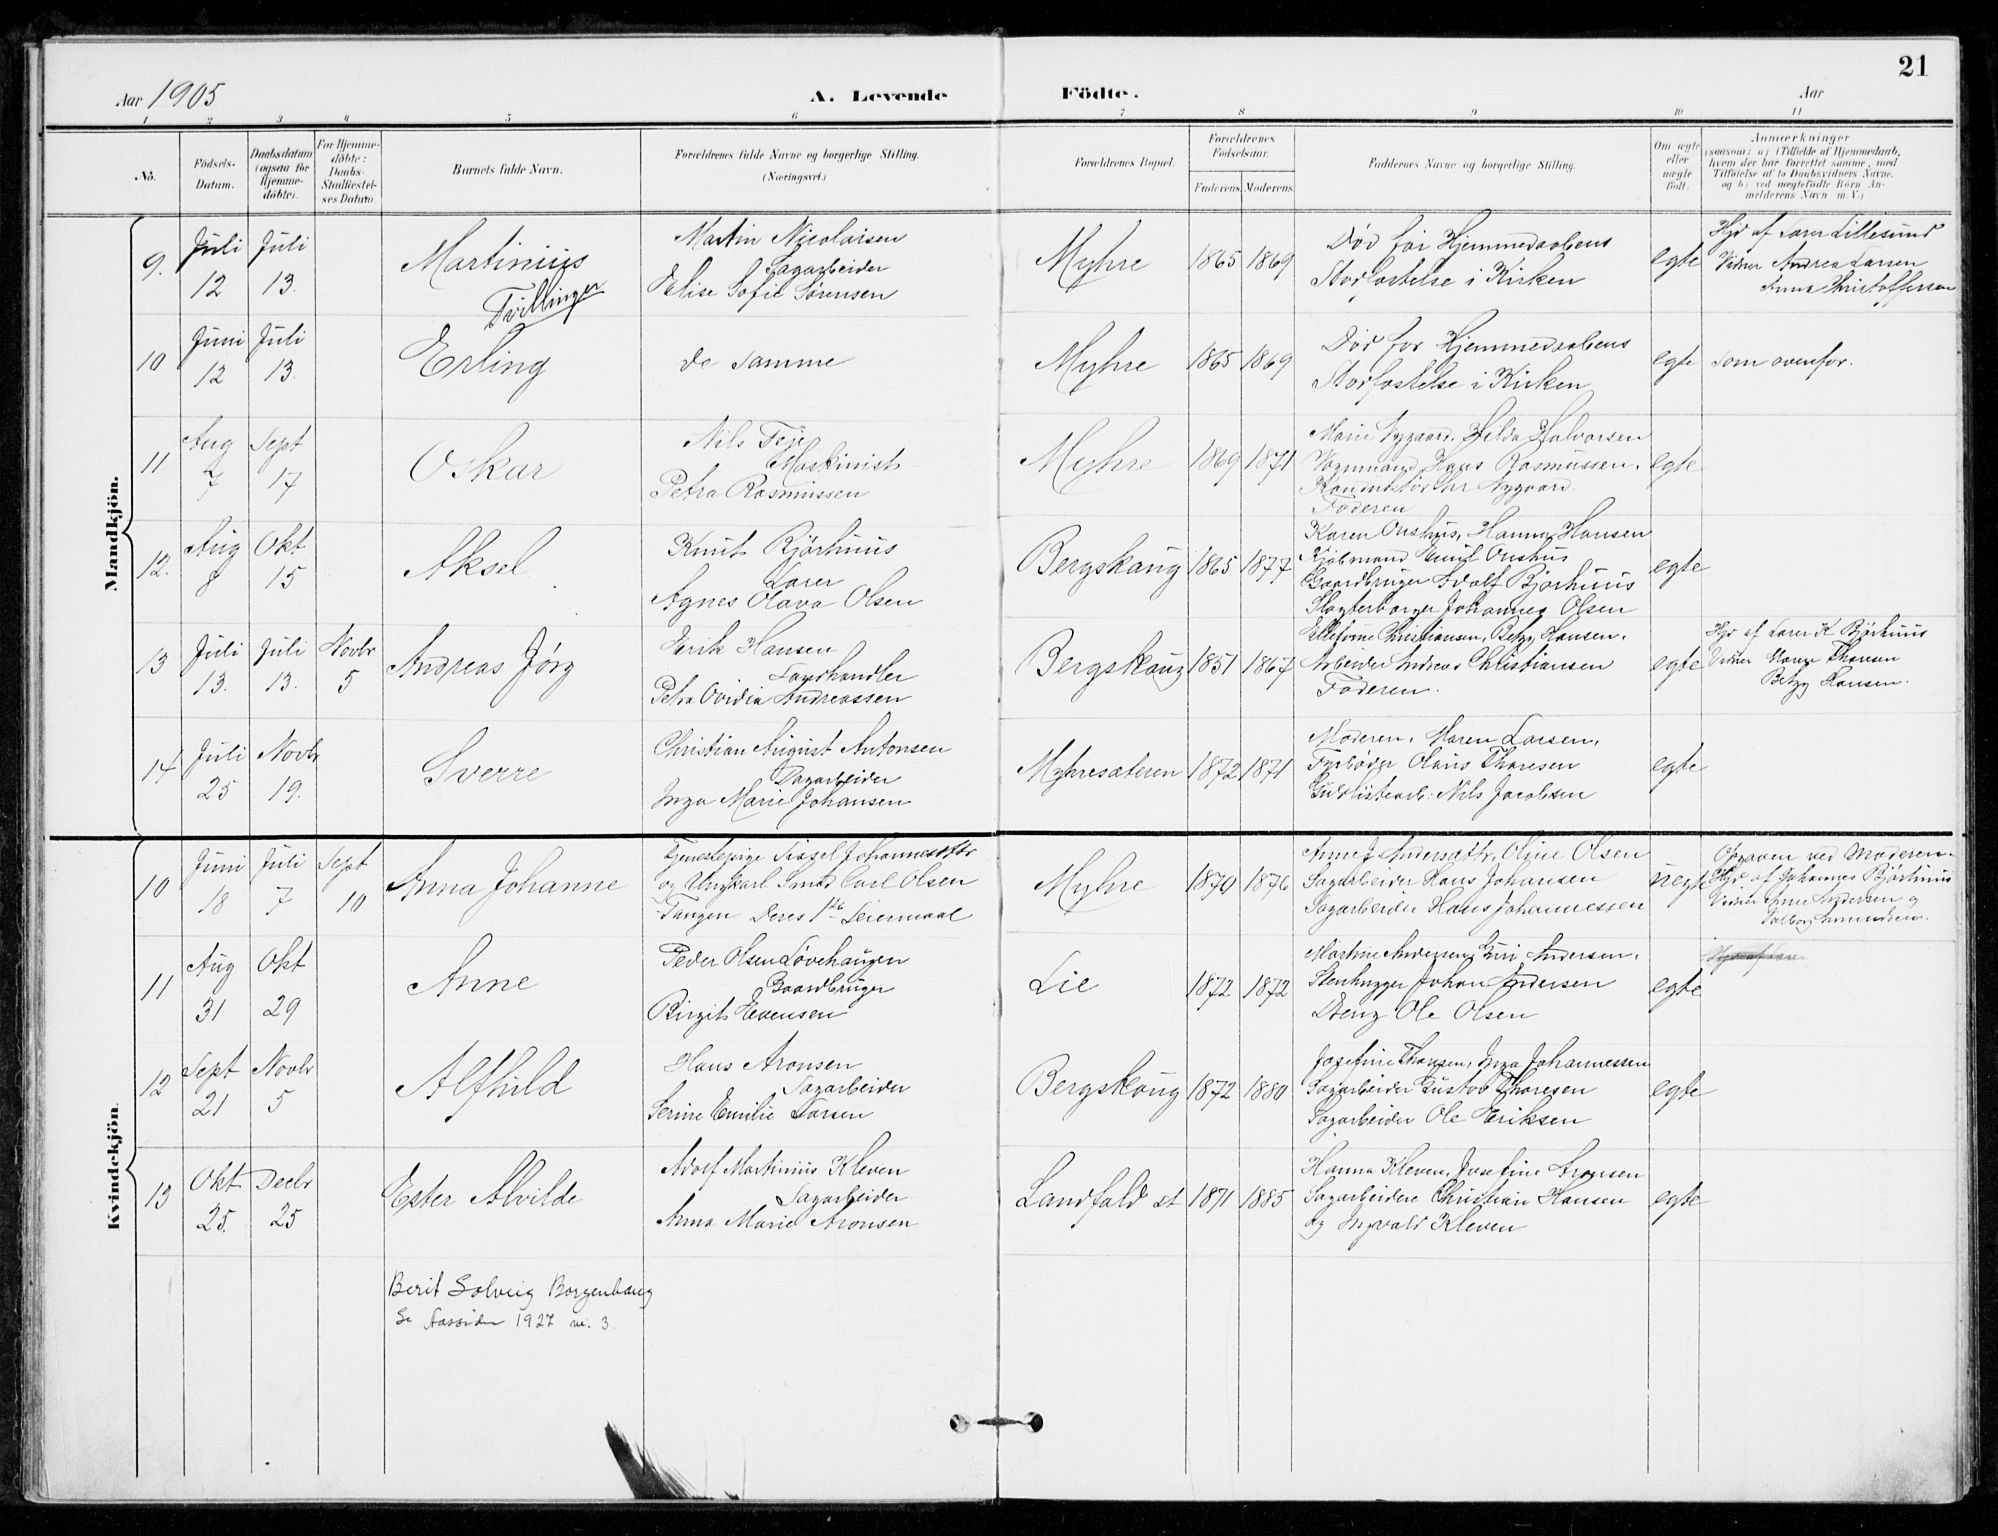 21
Aar 1905
A. Levende Födte.
Aar
1 2 3 4 5 6 7 8 9 10 11
No.
Födsels-Datum.
Daabsdatum (ogsaa for Hjemme-döbte).
For Hjemme-döbte: Daabs-Stadfæstel-ses Datum.
Barnets fulde Navn.
Forældrenes fulde Navne og borgerlige Stilling.
(Næringsvei.)
Forældrenes Bopæl.
Forældrenes Födselsaar.
Faderens. Moderens.
Faddernes Navne og borgerlige Stilling.
Om ægte eller uægte födt.
Anmærkninger
(saasom: a) i Tilfælde af Hjemmedaab,
hvem der har forrettet samme, med
Tilföielse af to Daabsvidners Navne.
og b) ved uægtefödte Börn An-
melderens Navn m.V.)
Mandkjön.
9. Juli 12 Juli 13. Martinius
Tvillinger
Martin Nicolaisen
Sagarbeider
Elise Sofie Sørensen
Myhre 1865 1869
Død før Hjemmedaabens
Stadfæstelse i Kirken
egte
Hjd af Lærer Lillesund
Vidner Andrea Larsen
Anna Christoffersen
10 Juni 12 Juli 13. Erling
de samme
Myhre 1865 1869
Død før Hjemmedaabens
Stadfæstelse i Kirken
egte
som ovenfor.
11 Aug 7 Sept 17 Oskar
Nils Teje
Maskinist
Petra Rasmussen
Myhre 1869 1871
Marie Nygaard, Hilda Halvorsen
Vognmand Hans Rasmussen,
Konduktør Chr Nygaard.
Faderen
egte
12. Aug 8 Okt 15 Aksel
Knut Bjørhuus
Lærer
Agnes Olava Olsen
Bergskaug 1865 1877
Karen Onshus, Hanna Hansen
Kjøbmand Emil Onshus
Gaardbruger Adolf Bjørhuus
Slagterborger Johannes Olsen
egte
13 Juli 13. Juli 13. Novbr 5 Andreas Jørg
Erik Hansen
Landhandler
Petra Ovidia Andreassen
Bergskaug 1851 1867
Ellefine Christiansen, Betzy Hansen,
Arbeider Andreas Christiansen
Faderen.
egte
Hjd af Lærer K Bjørhuus
Vidner Maren Thoresen
Betzy Hansen.
14 Juli 25 Novbr 19. Sverre
Christian August Antonsen
Sagarbeider
Inga Marie Johansen
Myhresæteren 1872 1871
Moderen, Maren Larsen,
Fyrbøder Olaus Thoresen
Guldlistearb: Nils Jacobsen
egte
Kvindekjön.
10 Juni 18 Juli 7 Sept 10 Anna Johanne
Tjenestepige Sissel Johannesdtr
og Ungkarl Smed Carl Olsen
Tangen Deres 1ste Leiermaal
Myhre 1870 1876
Anne J. Andersdtr, Oline Olsen
Sagarbeider Hans Johansen
Sagarbeider Hans Johannessen
uegte
Opgaven ved Moderen.
Hjd af Johannes Bjørhuus
Vidner Anne Andersen og
Valborg Amundsen.
11 Aug 31 Okt 29 Anne
Peder Olsen Løvehaugen
Gaardbruger
Birgit Evensen
Lie 1872 1872
Martine Andersen, Guri Andersen,
Stenhugger Johan Andersen
Dreng Ole Olsen
egte
Hjd af Lærer
12 Sept 21 Novbr 5 Alfhild
Hans Aronsen
Sagarbeider
Serine Emilie Larsen
Bergskaug 1872 1880
Josefine Thoresen, Inga Johannessen
Sagarbeider Gustav Thoresen
Sagarbeider Ole Eriksen
egte
13 Okt 25. Decbr 25 Ester Alvilde
Adolf Martinius Kleven
Sagarbeider
Anna Marie Aronsen
Landfald st 1871 1885
Hanna Kleven, Josefine Aronsen
Sagarbeidere Christian Hansen
og Ingvald Kleven
egte
Berit Solveig Borgenhaug
Se Aassiden 1927 nr. 3.